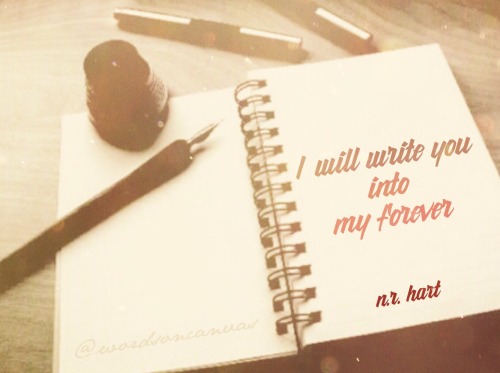 I will write you
into
my forever
n.r. hart
@wordsoncanvas